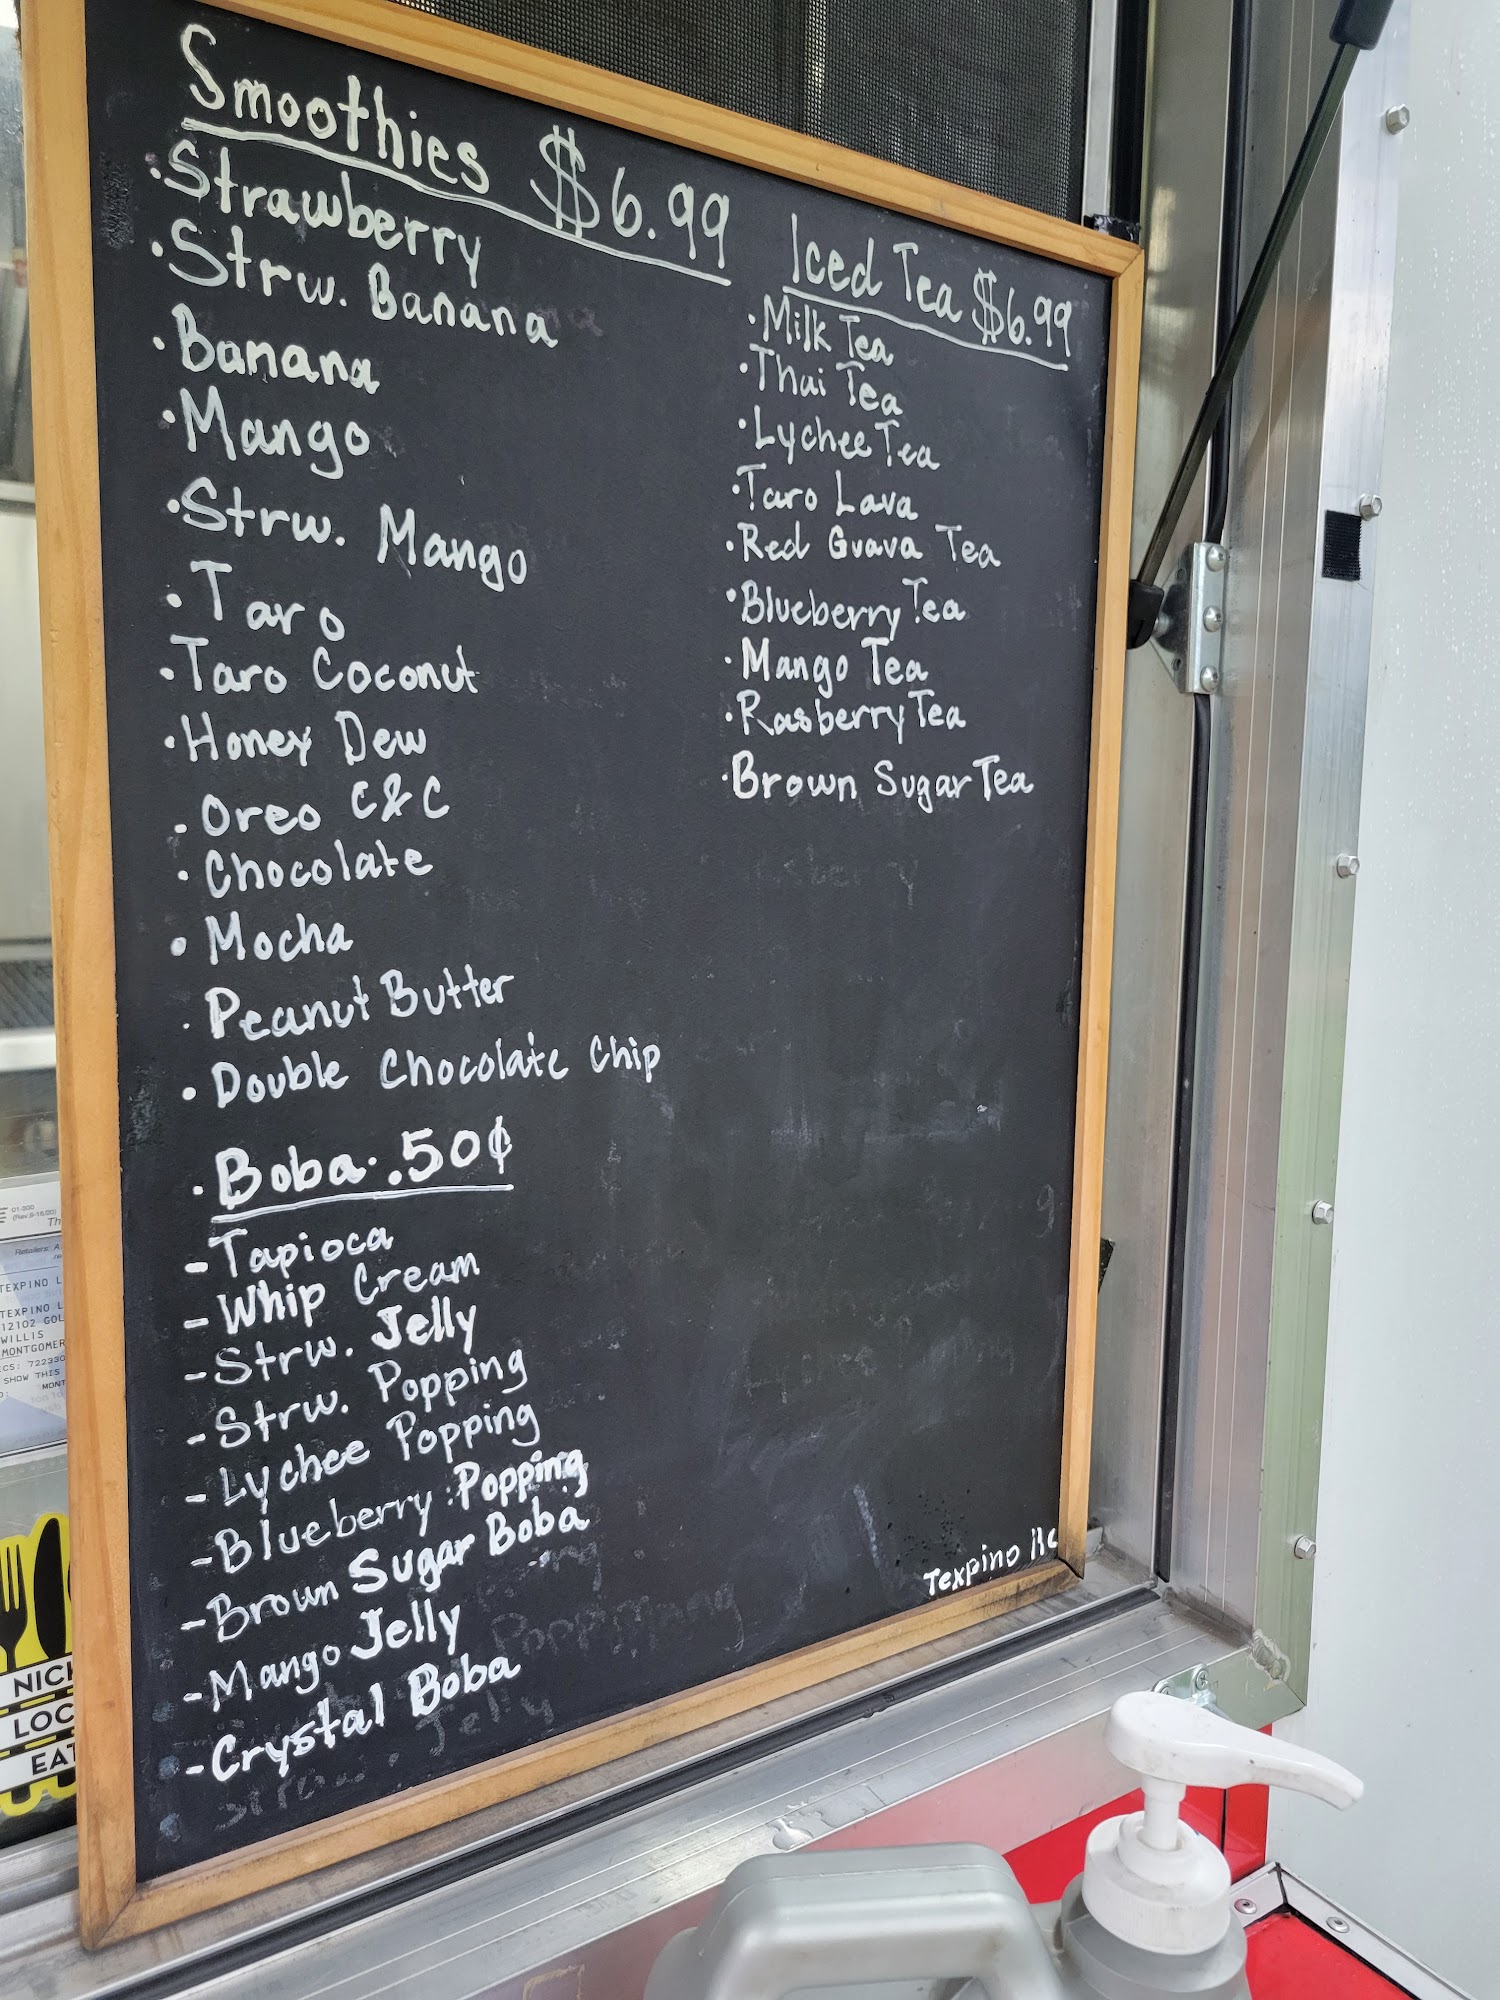 Smoothies $6.99
·Strawberry
·Strw. Banana
·Banana
·Mango
·Strw. Mango
·Taro
·Taro Coconut
·Honey Dew
·Oreo C&C
·Chocolate
·Mocha
·Peanut Butter
·Double Chocolate Chip
·Boba .50¢
-Tapioca
-Whip Cream
-Strw. Jelly
-Strw. Popping
-Lychee Popping
-Blueberry Popping
-Brown Sugar Boba
-Mango Jelly
-Crystal Boba
Iced Tea $6.99
·Milk Tea
·Thai Tea
·Lychee Tea
·Taro Lava
·Red Guava Tea
·Blueberry Tea
·Mango Tea
·Rasberry Tea
·Brown Sugar Tea
Texpino llc
01-300
Retailers:
TEXPINO L
TEXPINO L
12102 GOL
WILLIS
MONTGOMER
SHOW THIS
MONT
NICK
LOC
EAT